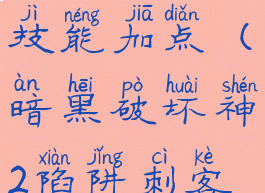 jì néng jiā diǎn
技能加点（
àn hēi pò huài shén
暗黑破坏神
xiàn jǐng cì kè
2陷阱刺客